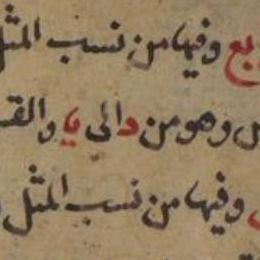 بع وفيها من نسب المثل
س وهو من د الى يا والقسـ
وفيها من نسب المثل